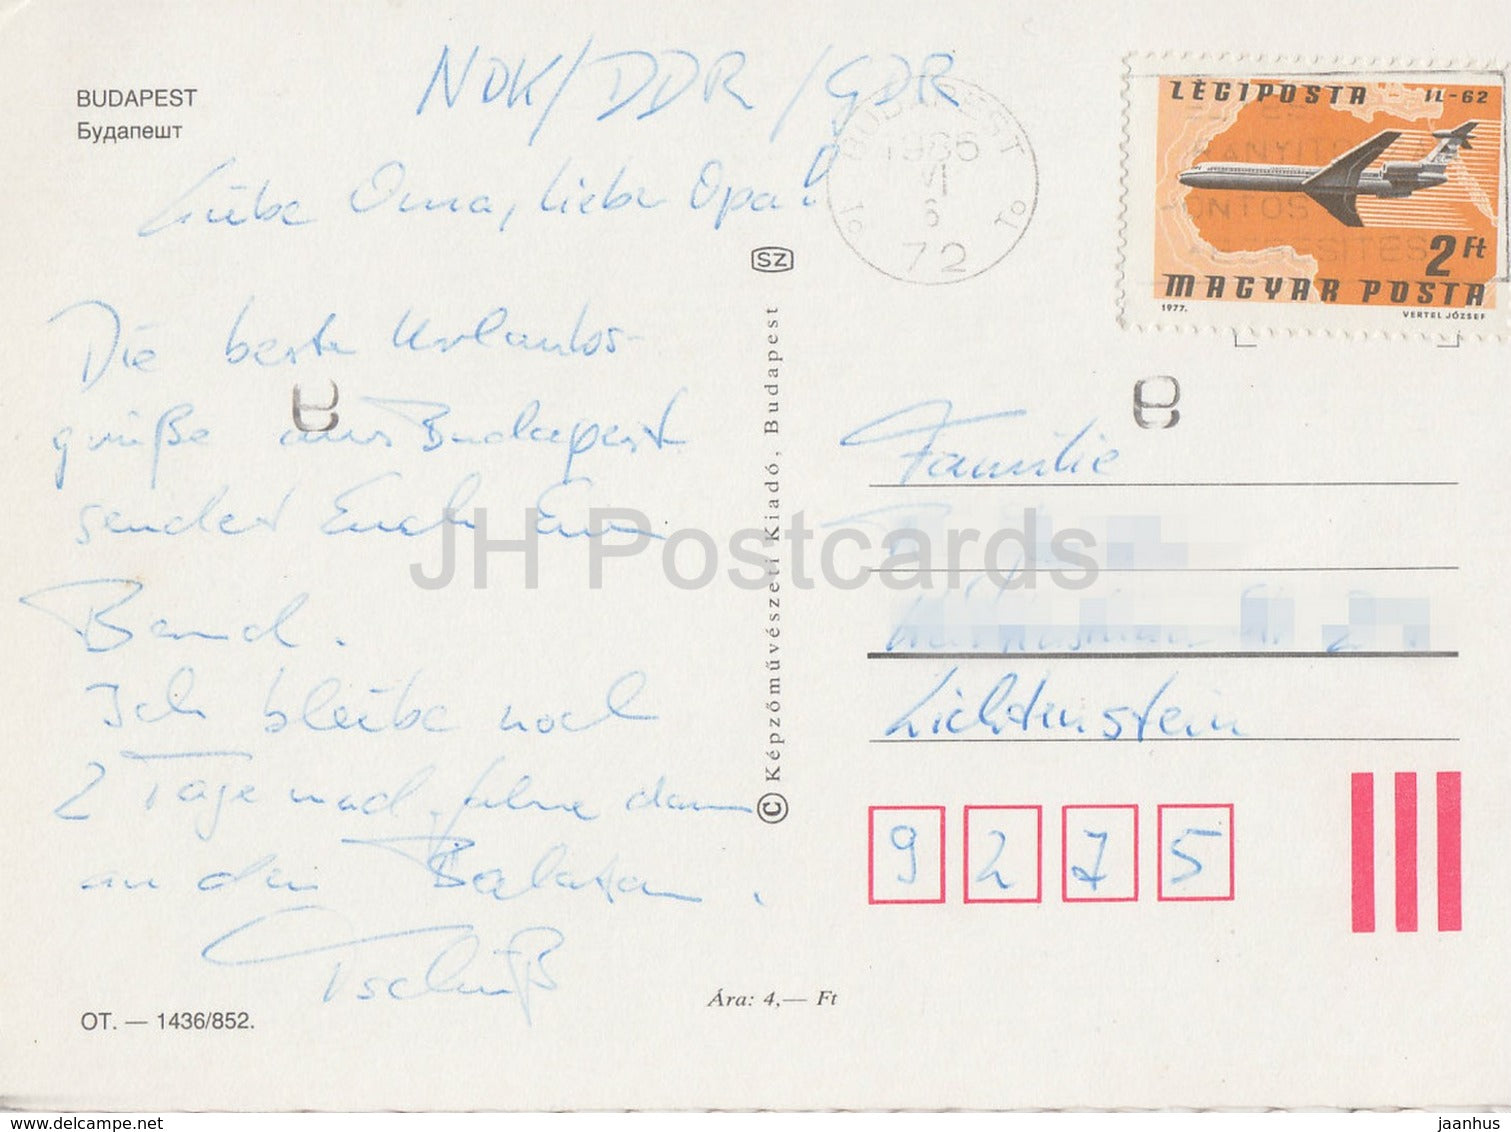 BUDAPEST
Будапешт
NDK/DDR/GDR
Liebe Oma, lieber Opa!
Die beste Urlaubs-
grüße aus Budapest
sendet Euch Euer
Bernd.
Ich bleibe noch
2 Tage und fahre dann
an den Balaton.
Tschüß
OT. — 1436/852.
Ára: 4,— Ft
SZ
© Képzőművészeti Kiadó, Budapest
BUDAPEST
1986
VI
6
72
LÉGIPOSTA - IL-62
2 Ft
MAGYAR POSTA
1977.
VERTEL JÓZSEF
Familie
Lichtenstein
9275
JH Postcards
www.delcampe.net
jaanhus